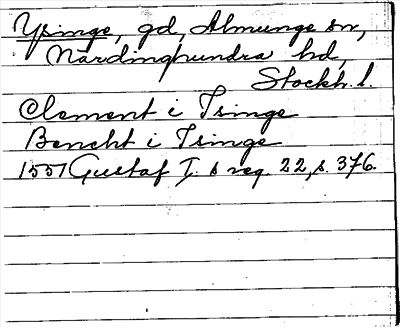 Ysinge, gd, Almunge sn,
Närdinghundra hd,
Stockh. l.
Clement i Tsinge
Bencht i Tsinge
1557 Gustaf I. s reg. 22, s. 376.